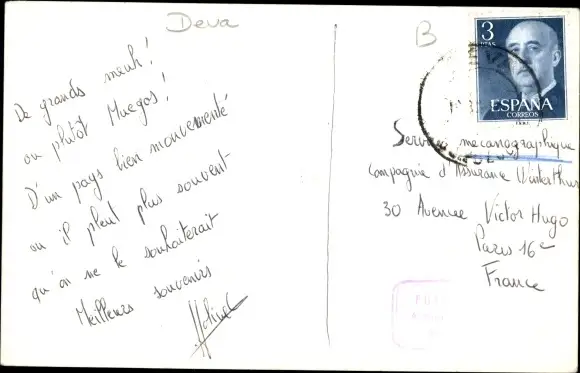 Deva
B
De grands meuh!
ou plutôt Muegos!
D'un pays bien mouvementé
où il pleut plus souvent
qu'on ne le souhaiterait
Meilleurs souvenirs
3
PTAS
ESPAÑA
CORREOS
Service mécanographique
Compagnie d'Assurance Winterthur
30 Avenue Victor Hugo
Paris 16e
France